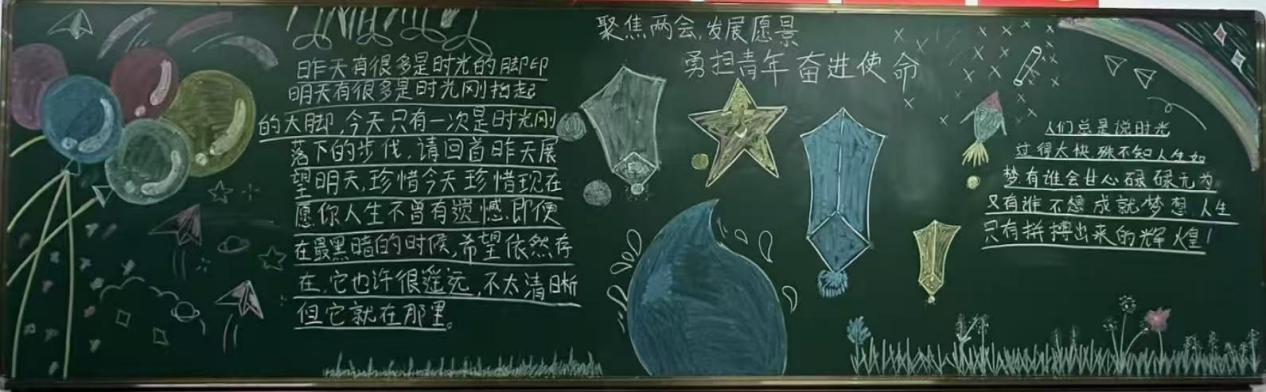 昨天有很多是时光的脚印
明天有很多是时光刚抬起
的大脚,今天只有一次是时光刚
落下的步伐,请回首昨天展
望明天,珍惜今天珍惜现在
愿你人生不曾有遗憾.即便
在最黑暗的时候,希望依然存
在,它也许很遥远,不太清晰
但它就在那里。
聚焦两会,发展愿景
勇担青年奋进使命
人们总是说时光
过得太快殊不知人生如
梦有谁会甘心碌碌无为
又有谁不想成就梦想人生
只有拼搏出来的辉煌!